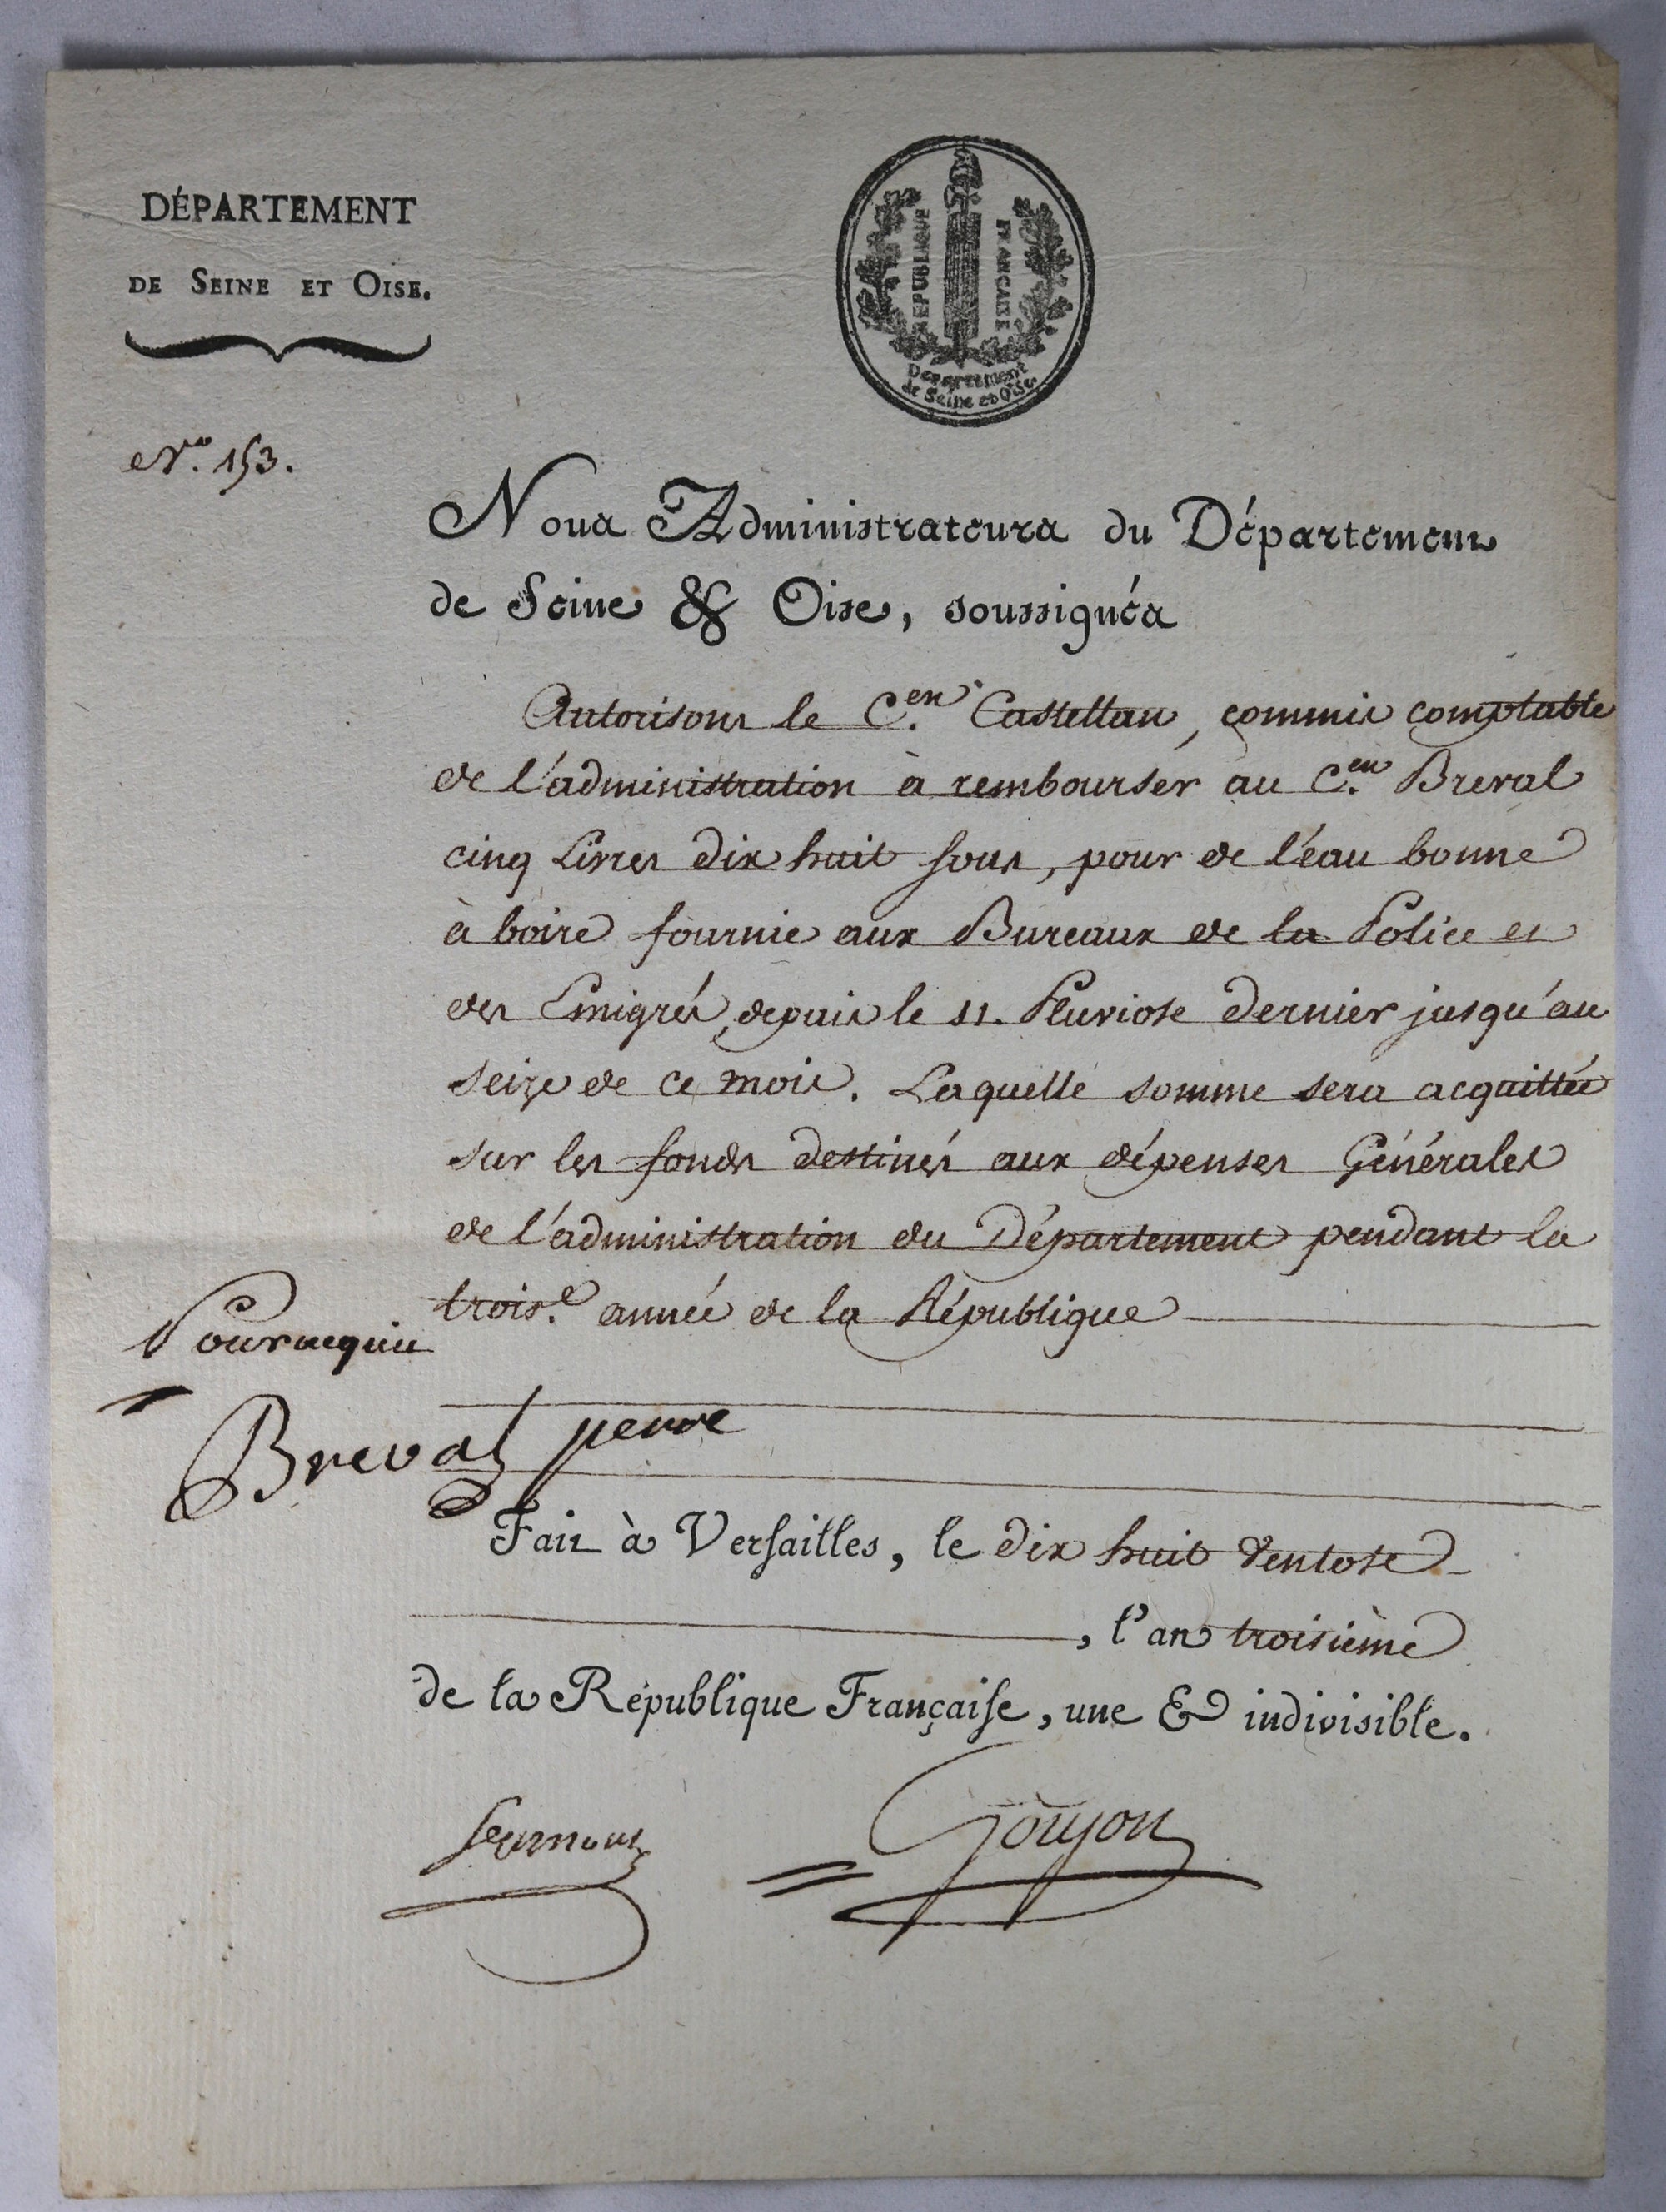 DÉPARTEMENT
DE SEINE ET OISE.
REPUBLIQUE FRANCAISE
Departement
de Seine et Oise
N.º 153.
Nous Administrateurs du Département
de Seine & Oise, soussignés
Autorisons le C.en Castellan, commis comptable
de l'administration à rembourser au C.en Breval
cinq Livres dix huit sous, pour de l'eau bonne
à boire fournie aux Bureaux de la Police et
des Emigrés, depuis le 11. Pluviose dernier jusqu'au
seize de ce mois. Laquelle somme sera acquittée
sur les fonds destinés aux dépenses Générales
de l'administration du Département pendant la
trois.e année de la République
Pour acquit
Breval
Fait à Versailles, le dix huit Ventose
, l'an troisième
de la République Française, une & indivisible.
Goujon